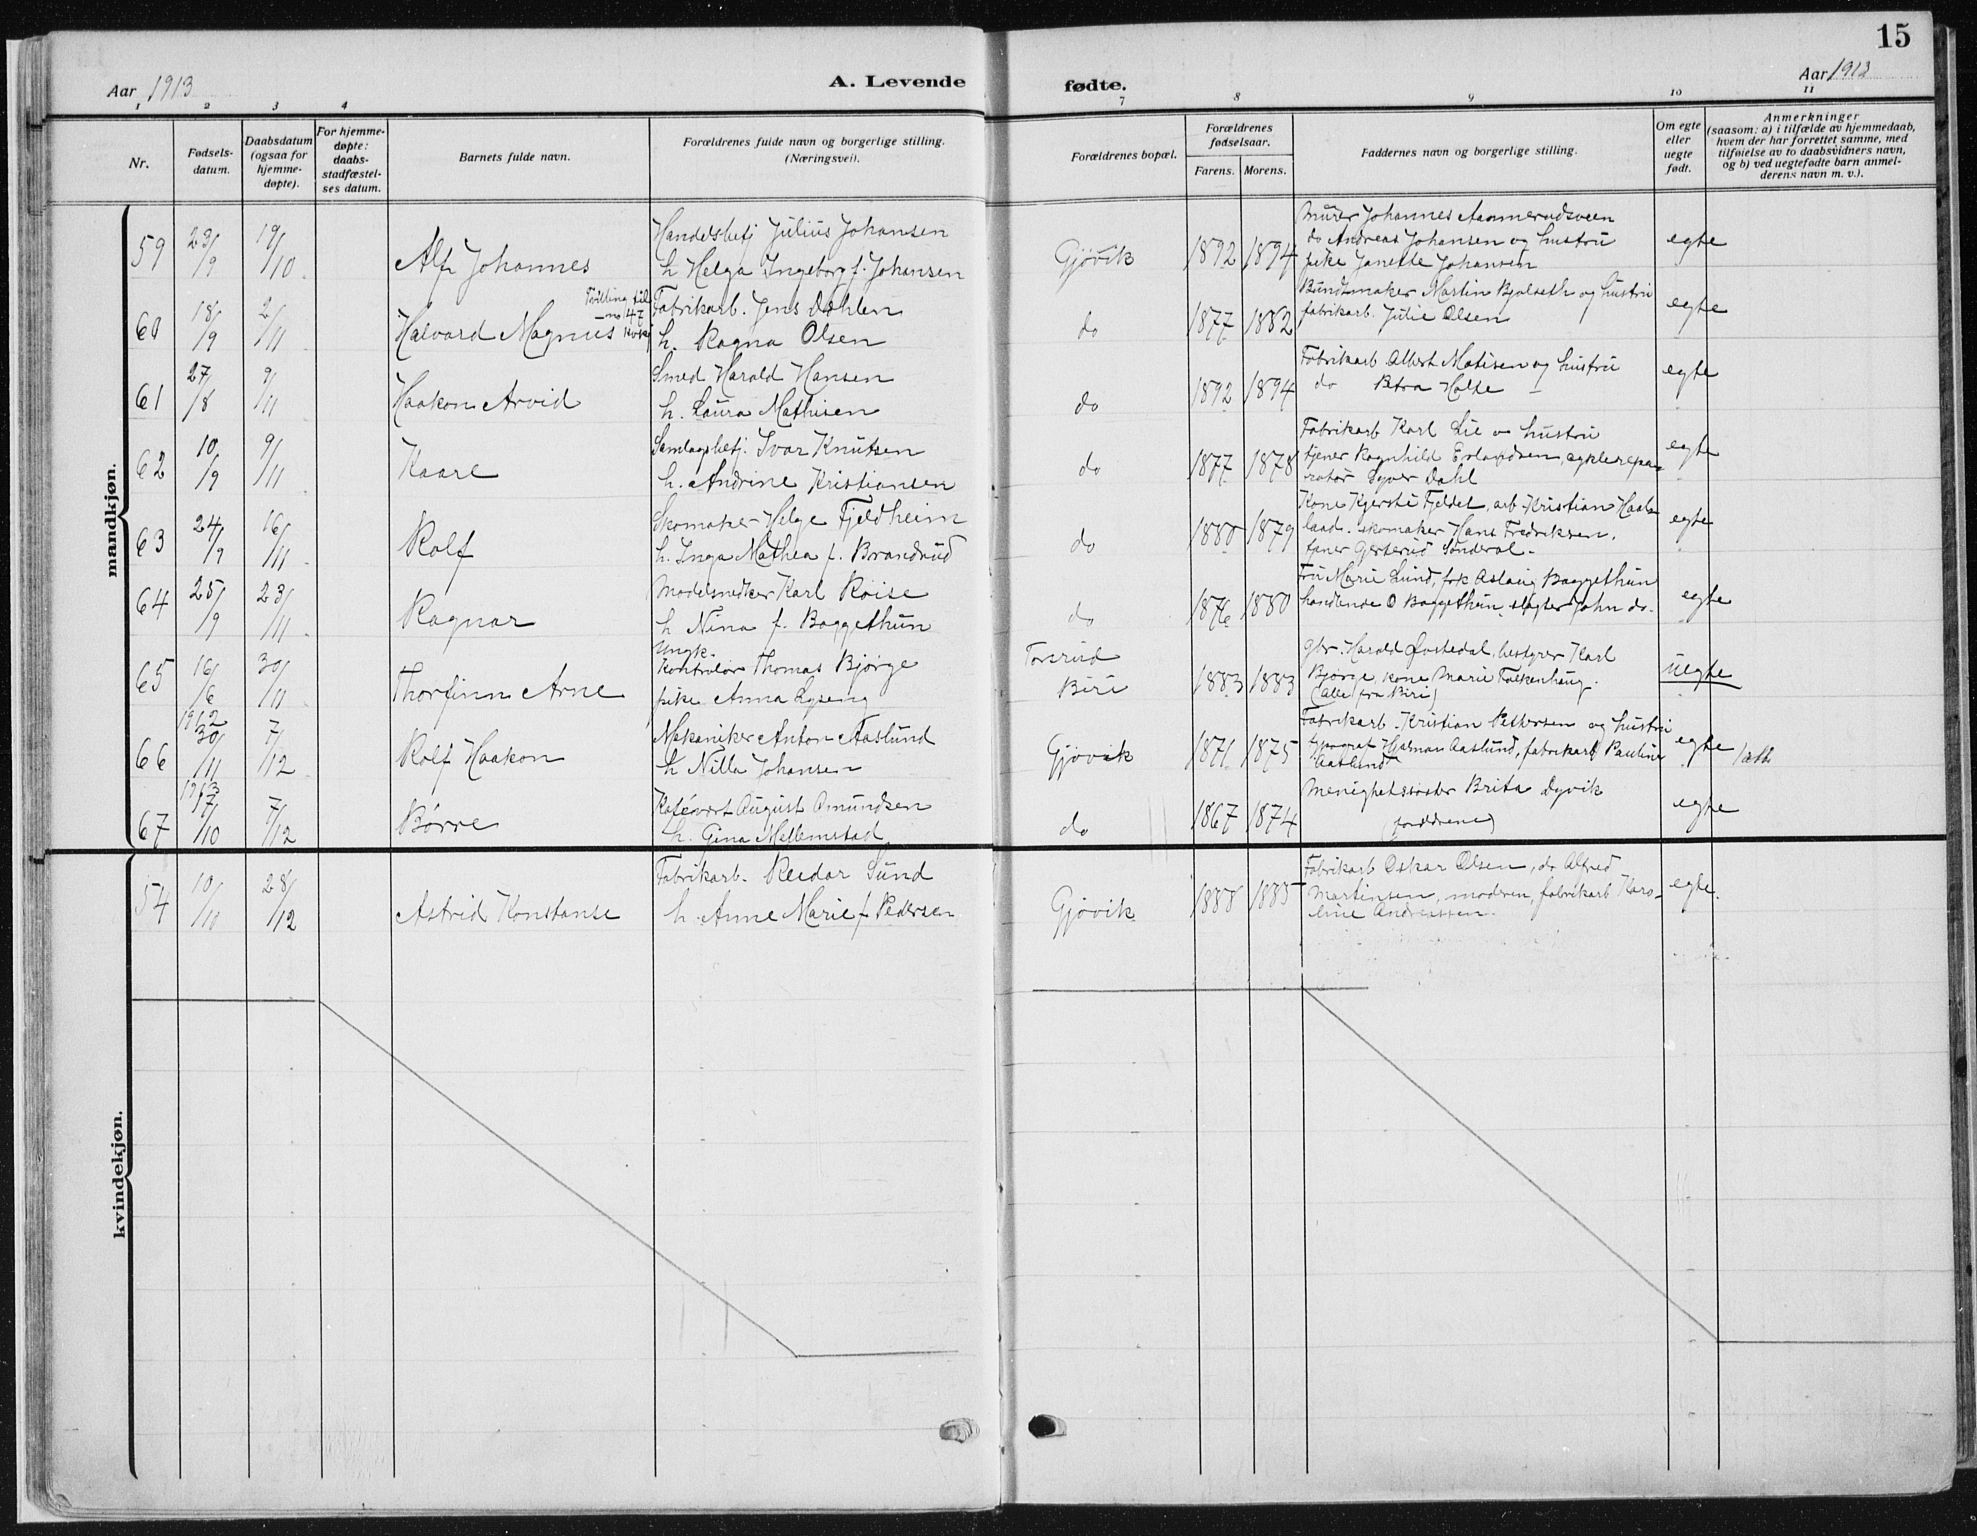 15
Aar 1913
A. Levende fødte.
Aar 1913
1 2 3 4 7 8 9 10 11
Nr.
Fødsels-
datum.
Daabsdatum
(ogsaa for
hjemme-
døpte).
For hjemme-
døpte:
daabs-
stadfæstel-
ses datum.
Barnets fulde navn.
Forældrenes fulde navn og borgerlige stilling.
(Næringsvei).
Forældrenes bopæl.
Forældrenes
fødselsaar.
Farens. Morens.
Faddernes navn og borgerlige stilling.
Om egte
eller
uegte
født.
Anmerkninger
(saasom: a) i tilfælde av hjemmedaab,
hvem der har forrettet samme, med
tilføielse av to daabsvidners navn,
og b) ved uegtefødte barn anmel-
derens navn m. v.).
mandkjøn.
59 23/9 19/10 Alf Johannes
Handelsbetj Julius Johansen
h Helga Ingeborg f. Johansen
Gjøvik 1892 1894
Murer Johannes Aammerudsveen
do Andreas Johansen og hustru
pike Janette Johansen
egte
60 18/9 2/11 Halvard Magnus
Tvilling til
no 47
Fabrikarb. Jens Dahlen
h. Ragna Olsen
do 1877 1882
Bundtmaker Martin Bjølseth og hustru
fabrikarb. Julie Olsen
egte
61 27/8 9/11 Haakon Arvid
Smed Harald Hansen
h. Laura Mathisen
do 1892 1894
Fabrikarb Albert Matisen og hustru
do Petra Holte
egte
62 10/9 9/11 Kaare
Samlagsbetj. Ivar Knutsen
h. Andrine Kristiansen
do 1877 1878
Fabrikarb Karl Lie o hustru
tjener Ragnhild Erlandsen, cyklerepa-
ratør Syver Dahl
egte
63 24/9 16/11 Rolf
Skomaker Helge Fjeldheim
h. Inga Mathea f. Brandrud
do 1880 1879
Kone Kjersti Fjeldet, arb Kristian Haak-
skomaker Hans Fredriksen,
egte
64 25/9 23/11 Ragnar
Modelsnedker Karl Roise
h Nina f. Baggethun
do 1876 1880
Fru Marie Lund, frk Aslaug Baggethun
handlende O Baggethun, slagter John do.
egte
65 16/6 30/11 Thorfinn Arne
Ungk.
Kontrolør Thomas Bjørge
pike Anna Lyseng
Biri 1883 1883
gbr. Harald Øvstedal, bestyrer Karl
Bjørge, kone Marie Falkenhaug.
(alle fra Biri)
uegte
66 1912 30/11 7/12 Rolf Haakon
Mekaniker Anton Aaslund
h Nilla Johansen
Gjøvik 1871 1875
Fabrikarb. Kristian Pettersen og hustru
typograf Hjalmar Aaslund, fabrikarb Pauline
Aaslund
egte
67 1913 7/10 7/12 Børre
Kafévert August Amundsen
h. Gina Mellemstad
do 1867 1874
Menighetssøster Brita Dyvik
(forældrene)
egte
kvindekjøn.
54 10/10 28/12 Astrid Konstanse
Fabrikarb. Reidar Sund
h. Anne Marie f Pedersen
Gjøvik 1888 1885
Fabrikarb Oskar Olsen, do Alfred
Martinsen, modren, fabrikarb Karo-
line Andreassen.
egte.